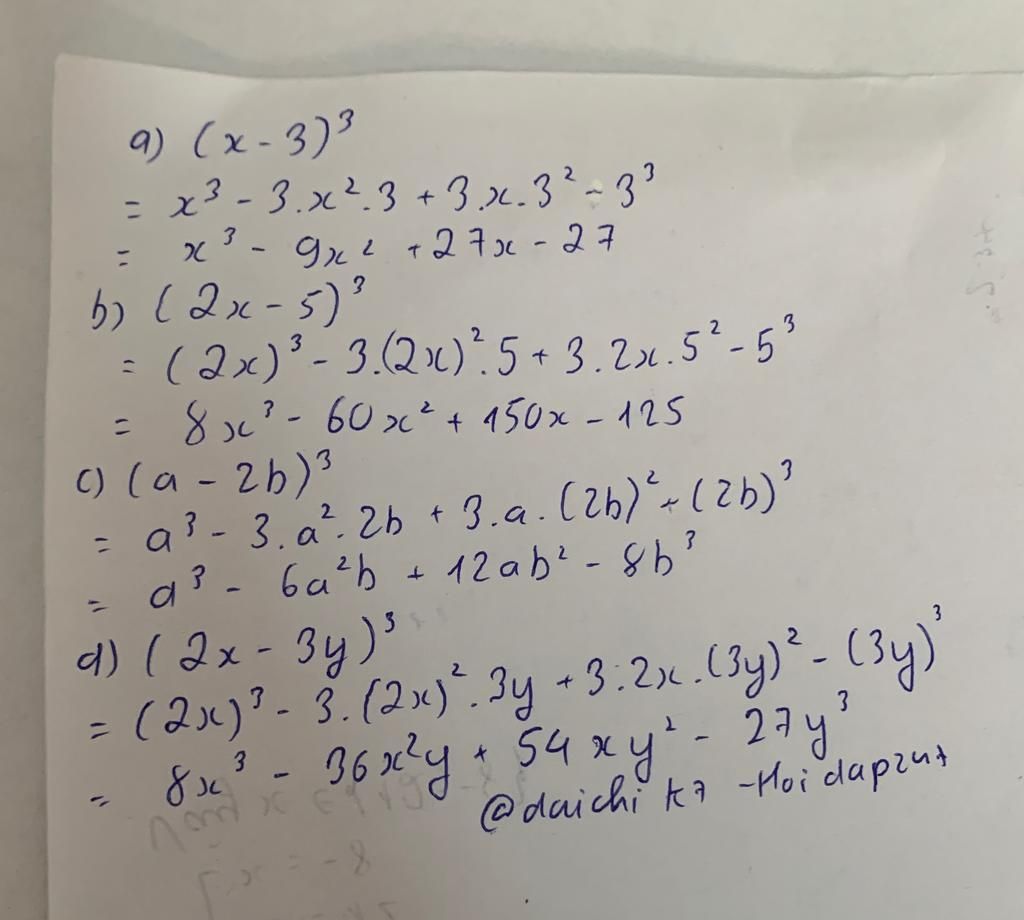 a) (x - 3)³
= x³ - 3.x².3 + 3.x.3² - 3³
= x³ - 9x² + 27x - 27
b) (2x - 5)³
= (2x)³ - 3.(2x)².5 + 3.2x.5² - 5³
= 8x³ - 60x² + 150x - 125
c) (a - 2b)³
= a³ - 3.a².2b + 3.a.(2b)² - (2b)³
= a³ - 6a²b + 12ab² - 8b³
d) (2x - 3y)³
= (2x)³ - 3.(2x)².3y + 3.2x.(3y)² - (3y)³
= 8x³ - 36x²y + 54xy² - 27y³
@daichi k7 -Hoidap247
x = -8